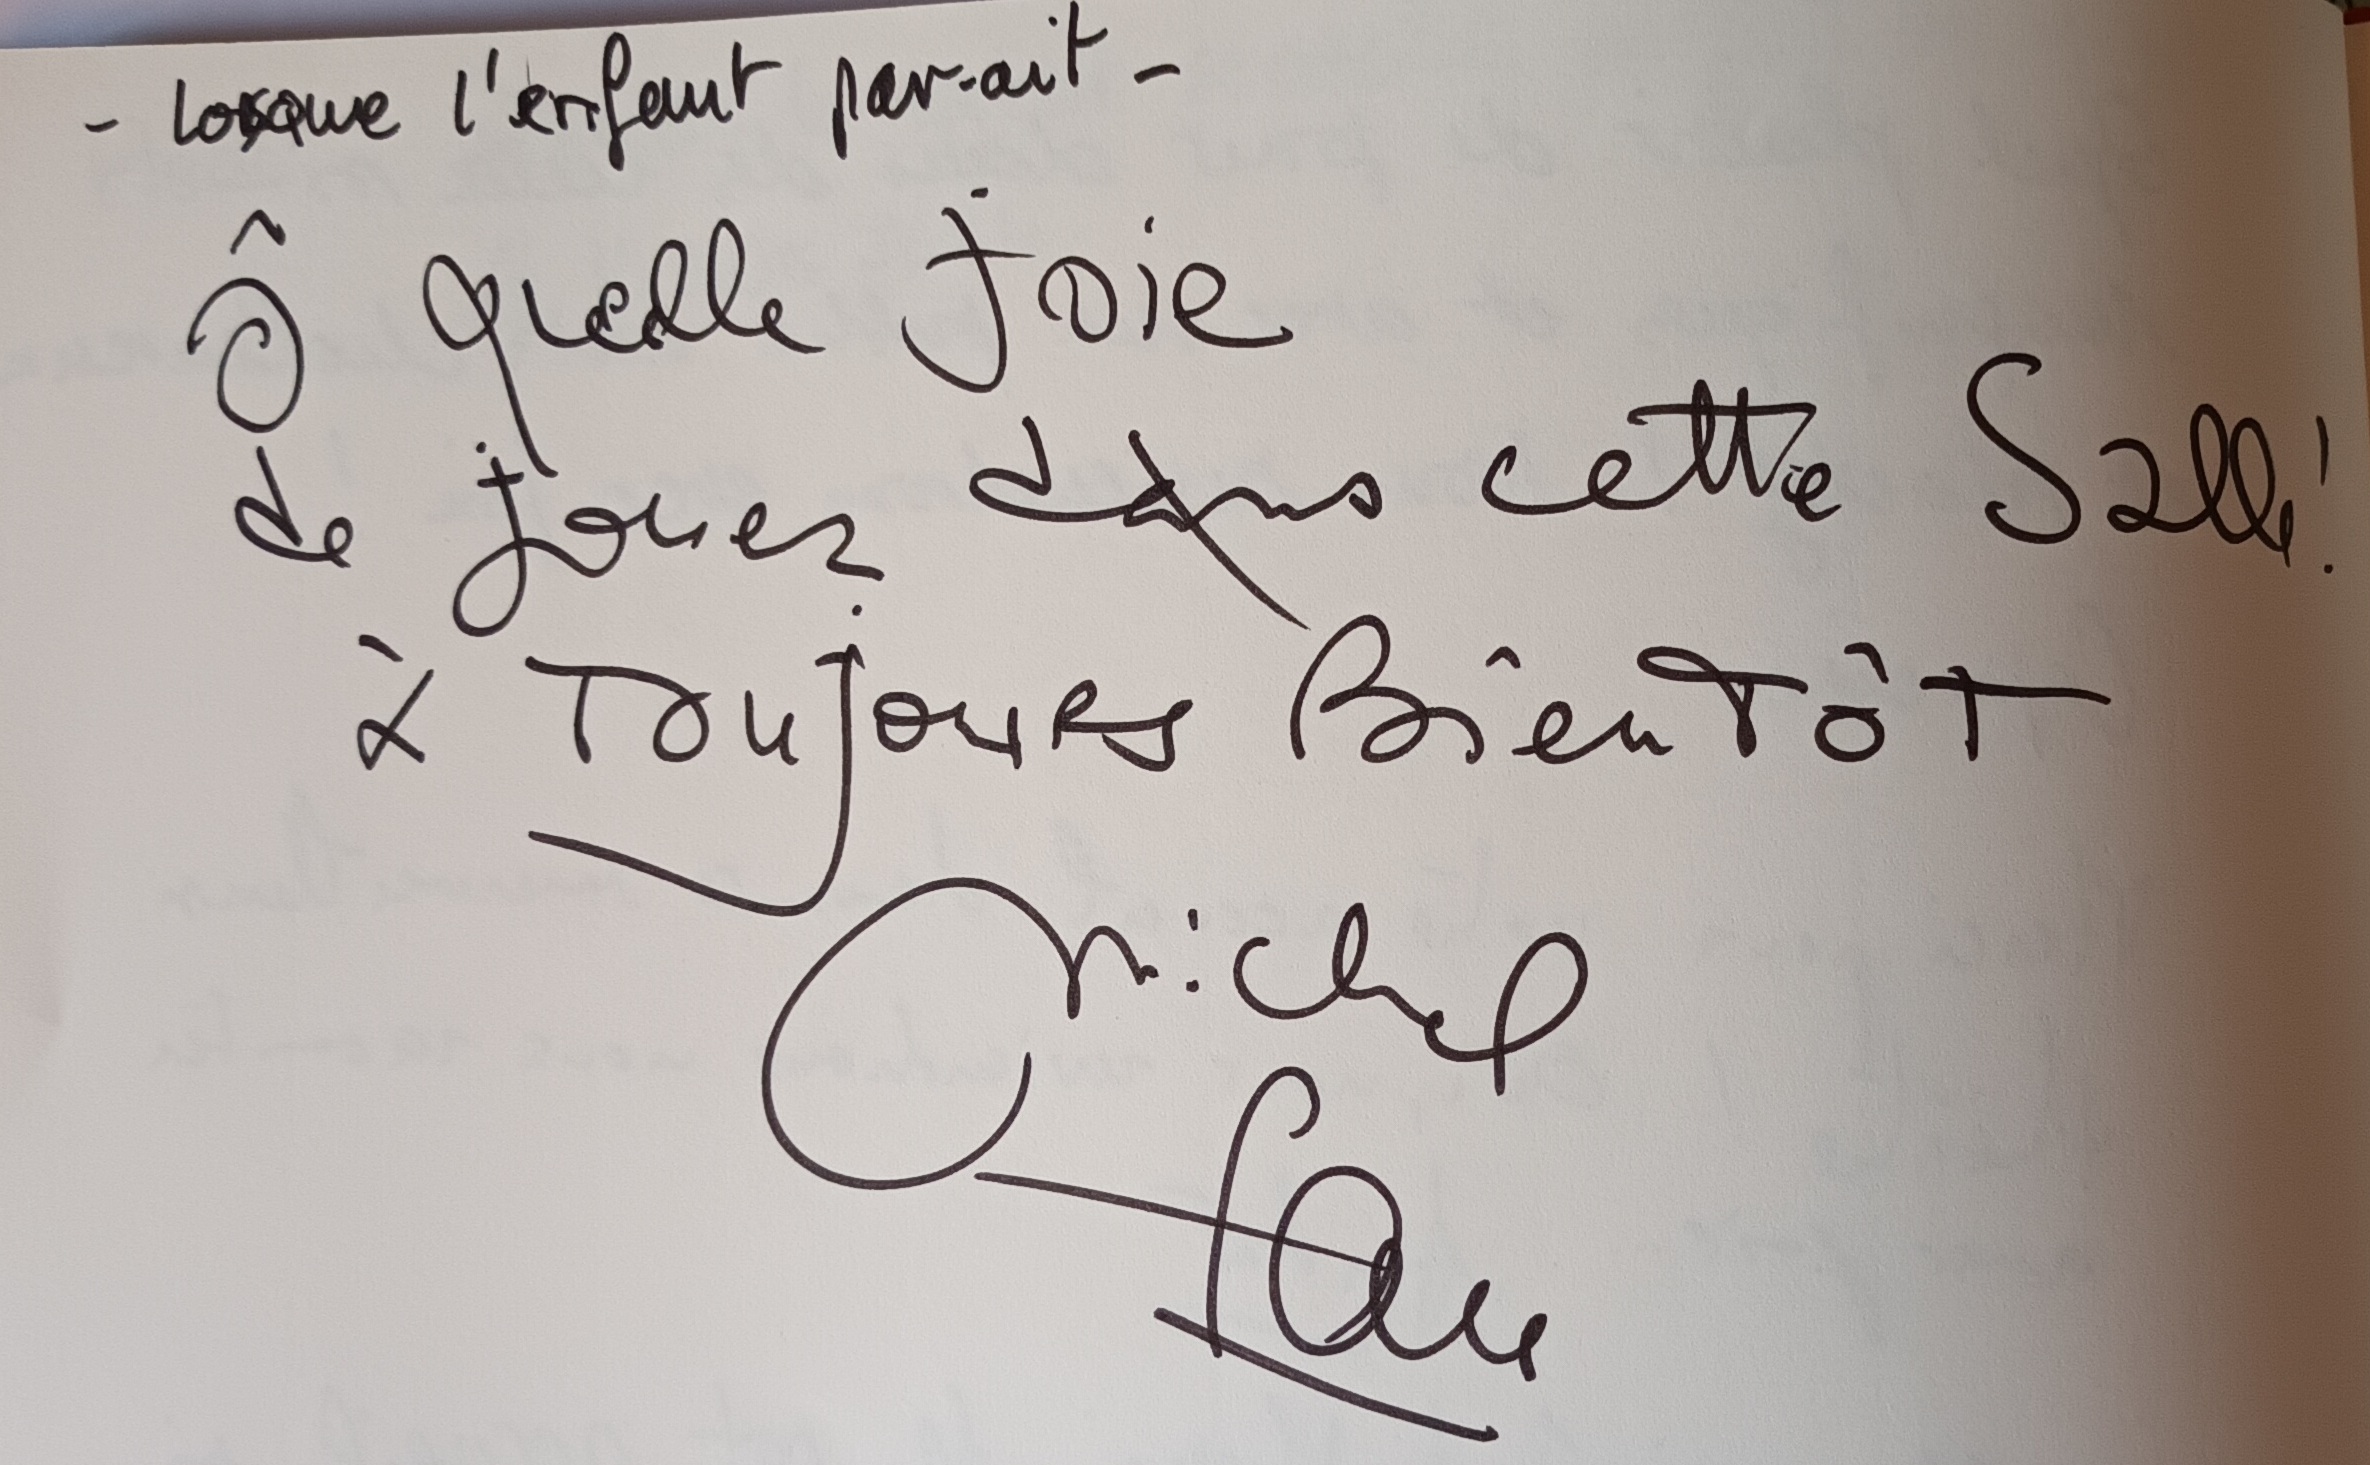 - Lorsque l'enfant paraît -
Ô quelle Joie
de jouer dans cette Salle!
à Toujours BienTôT
Michel
Fau